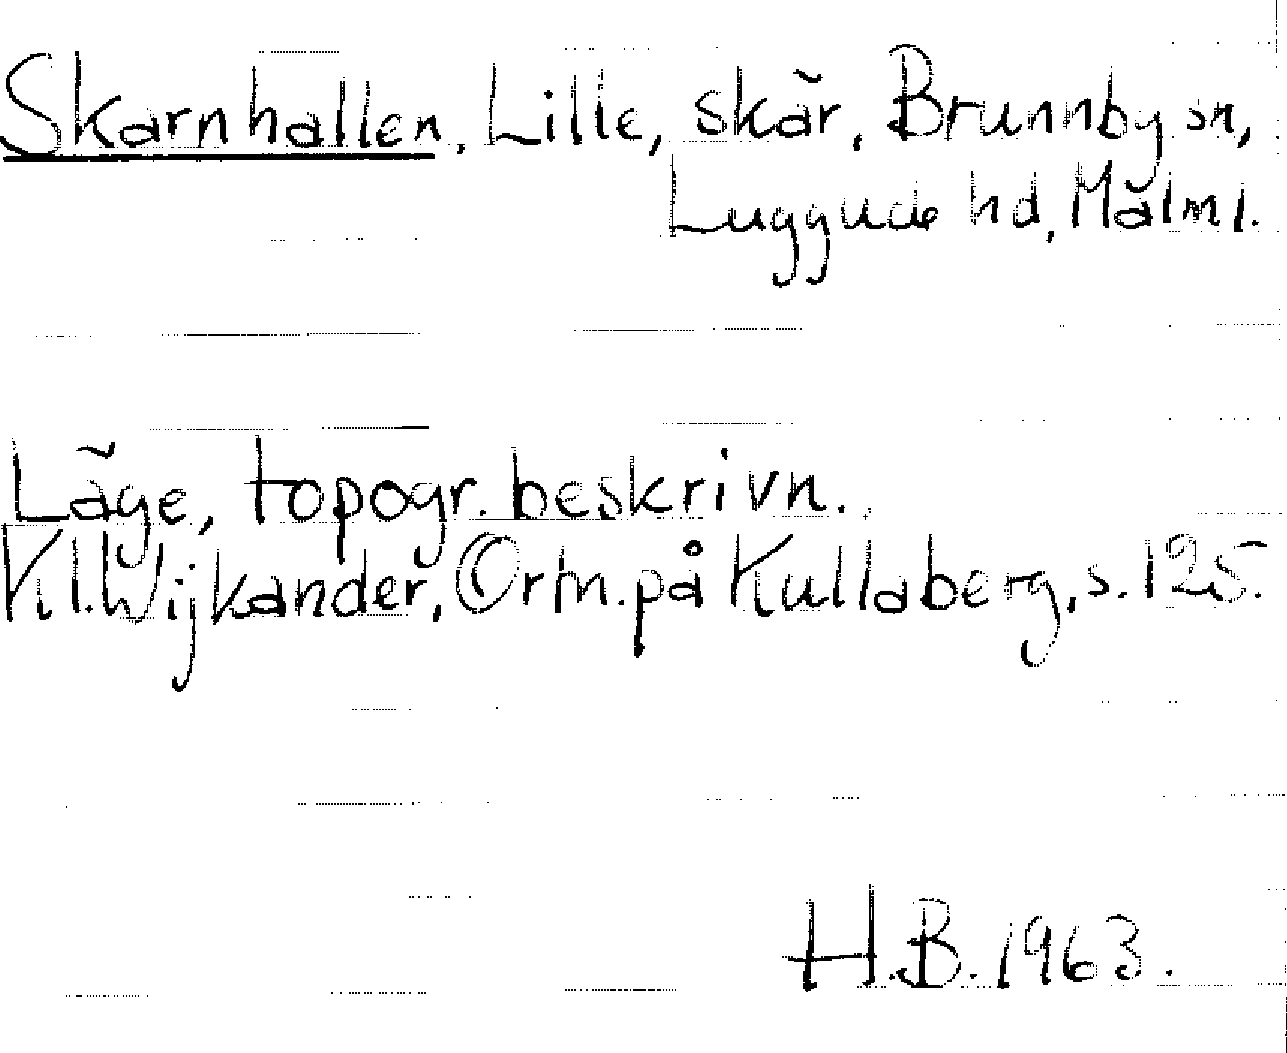 Skarnhallen, Lille, skär, Brunnby sn,
Luggude hd, Malml.
Läge, topogr. beskrivn.
Kl. Wijkander, Ortn. på Kullaberg, s. 125.
H.B. 1963.